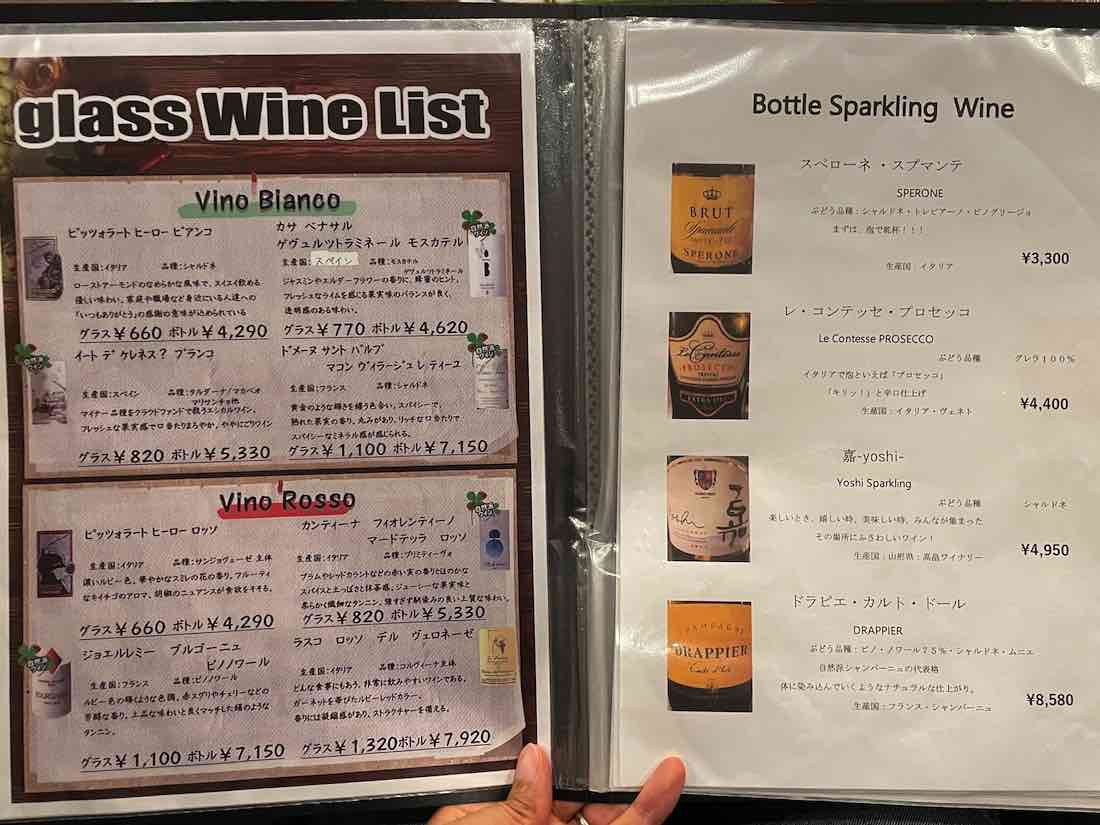 glass Wine List
Vino Bianco
ピッツォラート ヒーロー ビアンコ
生産国:イタリア 品種:シャルドネ
ローストアーモンドのなめらかな風味で、スイスイ飲める
優しい味わい。家庭や職場など身近にいる人達への
「いつもありがとう」の感謝の意味が込められている
グラス¥660 ボトル¥4,290
カサ ベナサル
ゲヴュルツトラミネール モスカテル
生産国:スペイン 品種:モスカテル
ゲヴュルツトラミネール
ジャスミンやエルダーフラワーの香りに、蜂蜜のヒント。
フレッシュなライムを感じる果実味のバランスが良く、
透明感のある味わい。
グラス¥770 ボトル¥4,620
イート デ ケレネス? ブランコ
生産国:スペイン 品種:タルダーナ/マカベオ
マリサンチョ他
マイナー品種をクラウドファンドで救うエシカルワイン。
フレッシュな果実感で口当たりまろやか。ややにごりワイン
グラス¥820 ボトル¥5,330
ドメーヌ サント バルブ
マコン ヴィラージュ レ ティーユ
生産国:フランス 品種:シャルドネ
黄金のような輝きを纏う色合い。スパイシーで、
熟れた果実の香り。丸みがあり、リッチな口当たりで
スパイシーなミネラル感が感じられる。
グラス¥1,100 ボトル¥7,150
Vino Rosso
ピッツォラート ヒーロー ロッソ
生産国:イタリア 品種:サンジョヴェーゼ主体
濃いルビー色。華やかなスミレの花の香り。フルーティ
なモイチゴのアロマ、胡椒のニュアンスが食欲をそそる。
グラス¥660 ボトル¥4,290
カンティーナ フィオレンティーノ
マードテッラ ロッソ
生産国:イタリア 品種:プリミティーヴォ
プラムやレッドカラントなどの赤い実の香りとほのかな
スパイスと土っぽさと抹茶感。ジューシーな果実味と
柔らかく繊細なタンニン。強すぎず馴染みの良い上質な味わい。
グラス¥820 ボトル¥5,330
ジョエルレミー ブルゴーニュ
ピノノワール
生産国:フランス 品種:ピノノワール
ルビー色の輝くような色調。赤スグリやチェリーなどの
芳醇な香り。上品な味わいと良くマッチした絹のような
タンニン。
グラス¥1,100 ボトル¥7,150
ラスコ ロッソ デル ヴェロネーゼ
生産国:イタリア 品種:コルヴィーナ主体
どんな食事にもあう、非常に飲みやすいワインである。
ガーネットを帯びたルビーレッドカラー。
香りには凝縮感があり、ストラクチャーを備える。
グラス¥1,320ボトル¥7,920
Bottle Sparkling Wine
BRUT
Spumante
SPERONE
スペローネ・スプマンテ
SPERONE
ぶどう品種:シャルドネ・トレビアーノ・ピノグリージョ
まずは、泡で乾杯!!!
生産国 イタリア
¥3,300
Le Contesse
PROSECCO
TREVISO
EXTRA DRY
レ・コンテッセ・プロセッコ
Le Contesse PROSECCO
ぶどう品種 グレラ100%
イタリアで泡といえば「プロセッコ」
「キリッ!」と辛口仕上げ
生産国:イタリア・ヴェネト
¥4,400
嘉
嘉-yoshi-
Yoshi Sparkling
ぶどう品種 シャルドネ
楽しいとき、嬉しい時、美味しい時、みんなが集まった
その場所にふさわしいワイン!
生産国:山形県:高畠ワイナリー
¥4,950
CHAMPAGNE
DRAPPIER
Carte d'Or
ドラピエ・カルト・ドール
DRAPPIER
ぶどう品種:ピノ・ノワール75%・シャルドネ・ムニエ
自然派シャンパーニュの代表格
体に染み込んでいくようなナチュラルな仕上がり。
生産国:フランス・シャンパーニュ
¥8,580